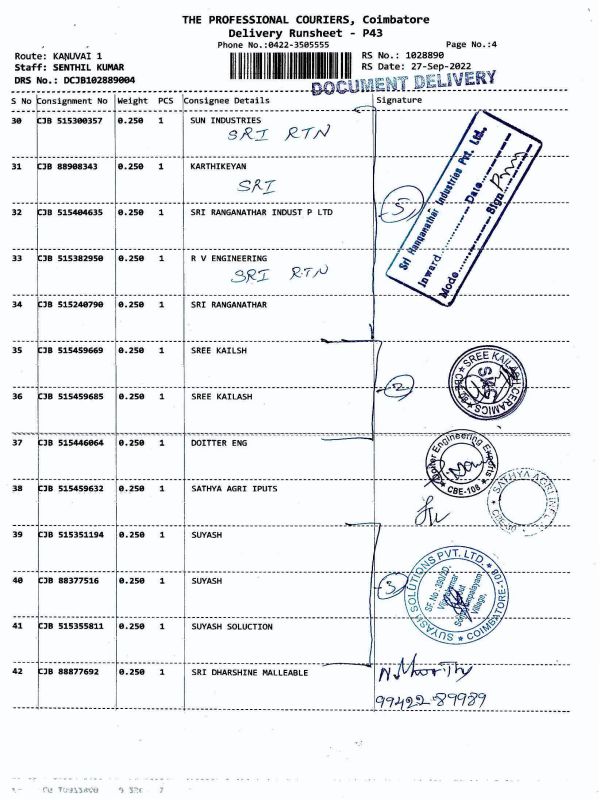 THE PROFESSIONAL COURIERS, Coimbatore
Delivery Runsheet - P43
Phone No.:0422-3505555 Page No.:4
Route: KANUVAI 1 RS No.: 1028890
Staff: SENTHIL KUMAR RS Date: 27-Sep-2022
DRS No.: DCJB102889004
DOCUMENT DELIVERY
S No Consignment No Weight PCS Consignee Details Signature
30 CJB 515300357 0.250 1 SUN INDUSTRIES
SRI RTN
31 CJB 88908343 0.250 1 KARTHIKEYAN
SRI
32 CJB 515404635 0.250 1 SRI RANGANATHAR INDUST P LTD
5
Sri Ranganathar Industries Pvt. Ltd.,
Inward.............Date.............
Mode.............Sign.............
33 CJB 515382950 0.250 1 R V ENGINEERING
SRI RTN
34 CJB 515240790 0.250 1 SRI RANGANATHAR
35 CJB 515459669 0.250 1 SREE KAILSH
36 CJB 515459685 0.250 1 SREE KAILASH
2
SREE KAILASH CERAMICS
37 CJB 515446064 0.250 1 DOITTER ENG
Engineering
CBE-108
38 CJB 515459632 0.250 1 SATHYA AGRI IPUTS
SATHYA AGRI
39 CJB 515351194 0.250 1 SUYASH
40 CJB 88377516 0.250 1 SUYASH
3
SUYASH SOLUTIONS PVT. LTD.
COIMBATORE-108
SF.No:390/2D,
Village,
41 CJB 515355811 0.250 1 SUYASH SOLUCTION
42 CJB 88877692 0.250 1 SRI DHARSHINE MALLEABLE
N. Moorthy
99422 89989